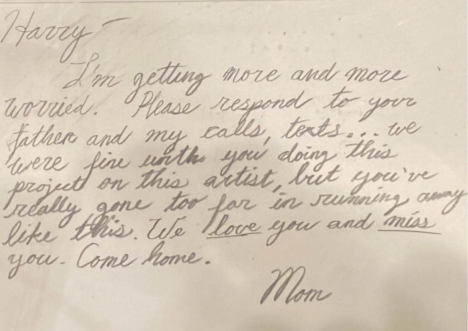 Harry -
I'm getting more and more
worried. Please respond to your
father and my calls, texts... we
were fine with you doing this
project on this artist, but you've
really gone too far in running away
like this. We love you and miss
you. Come home.
Mom